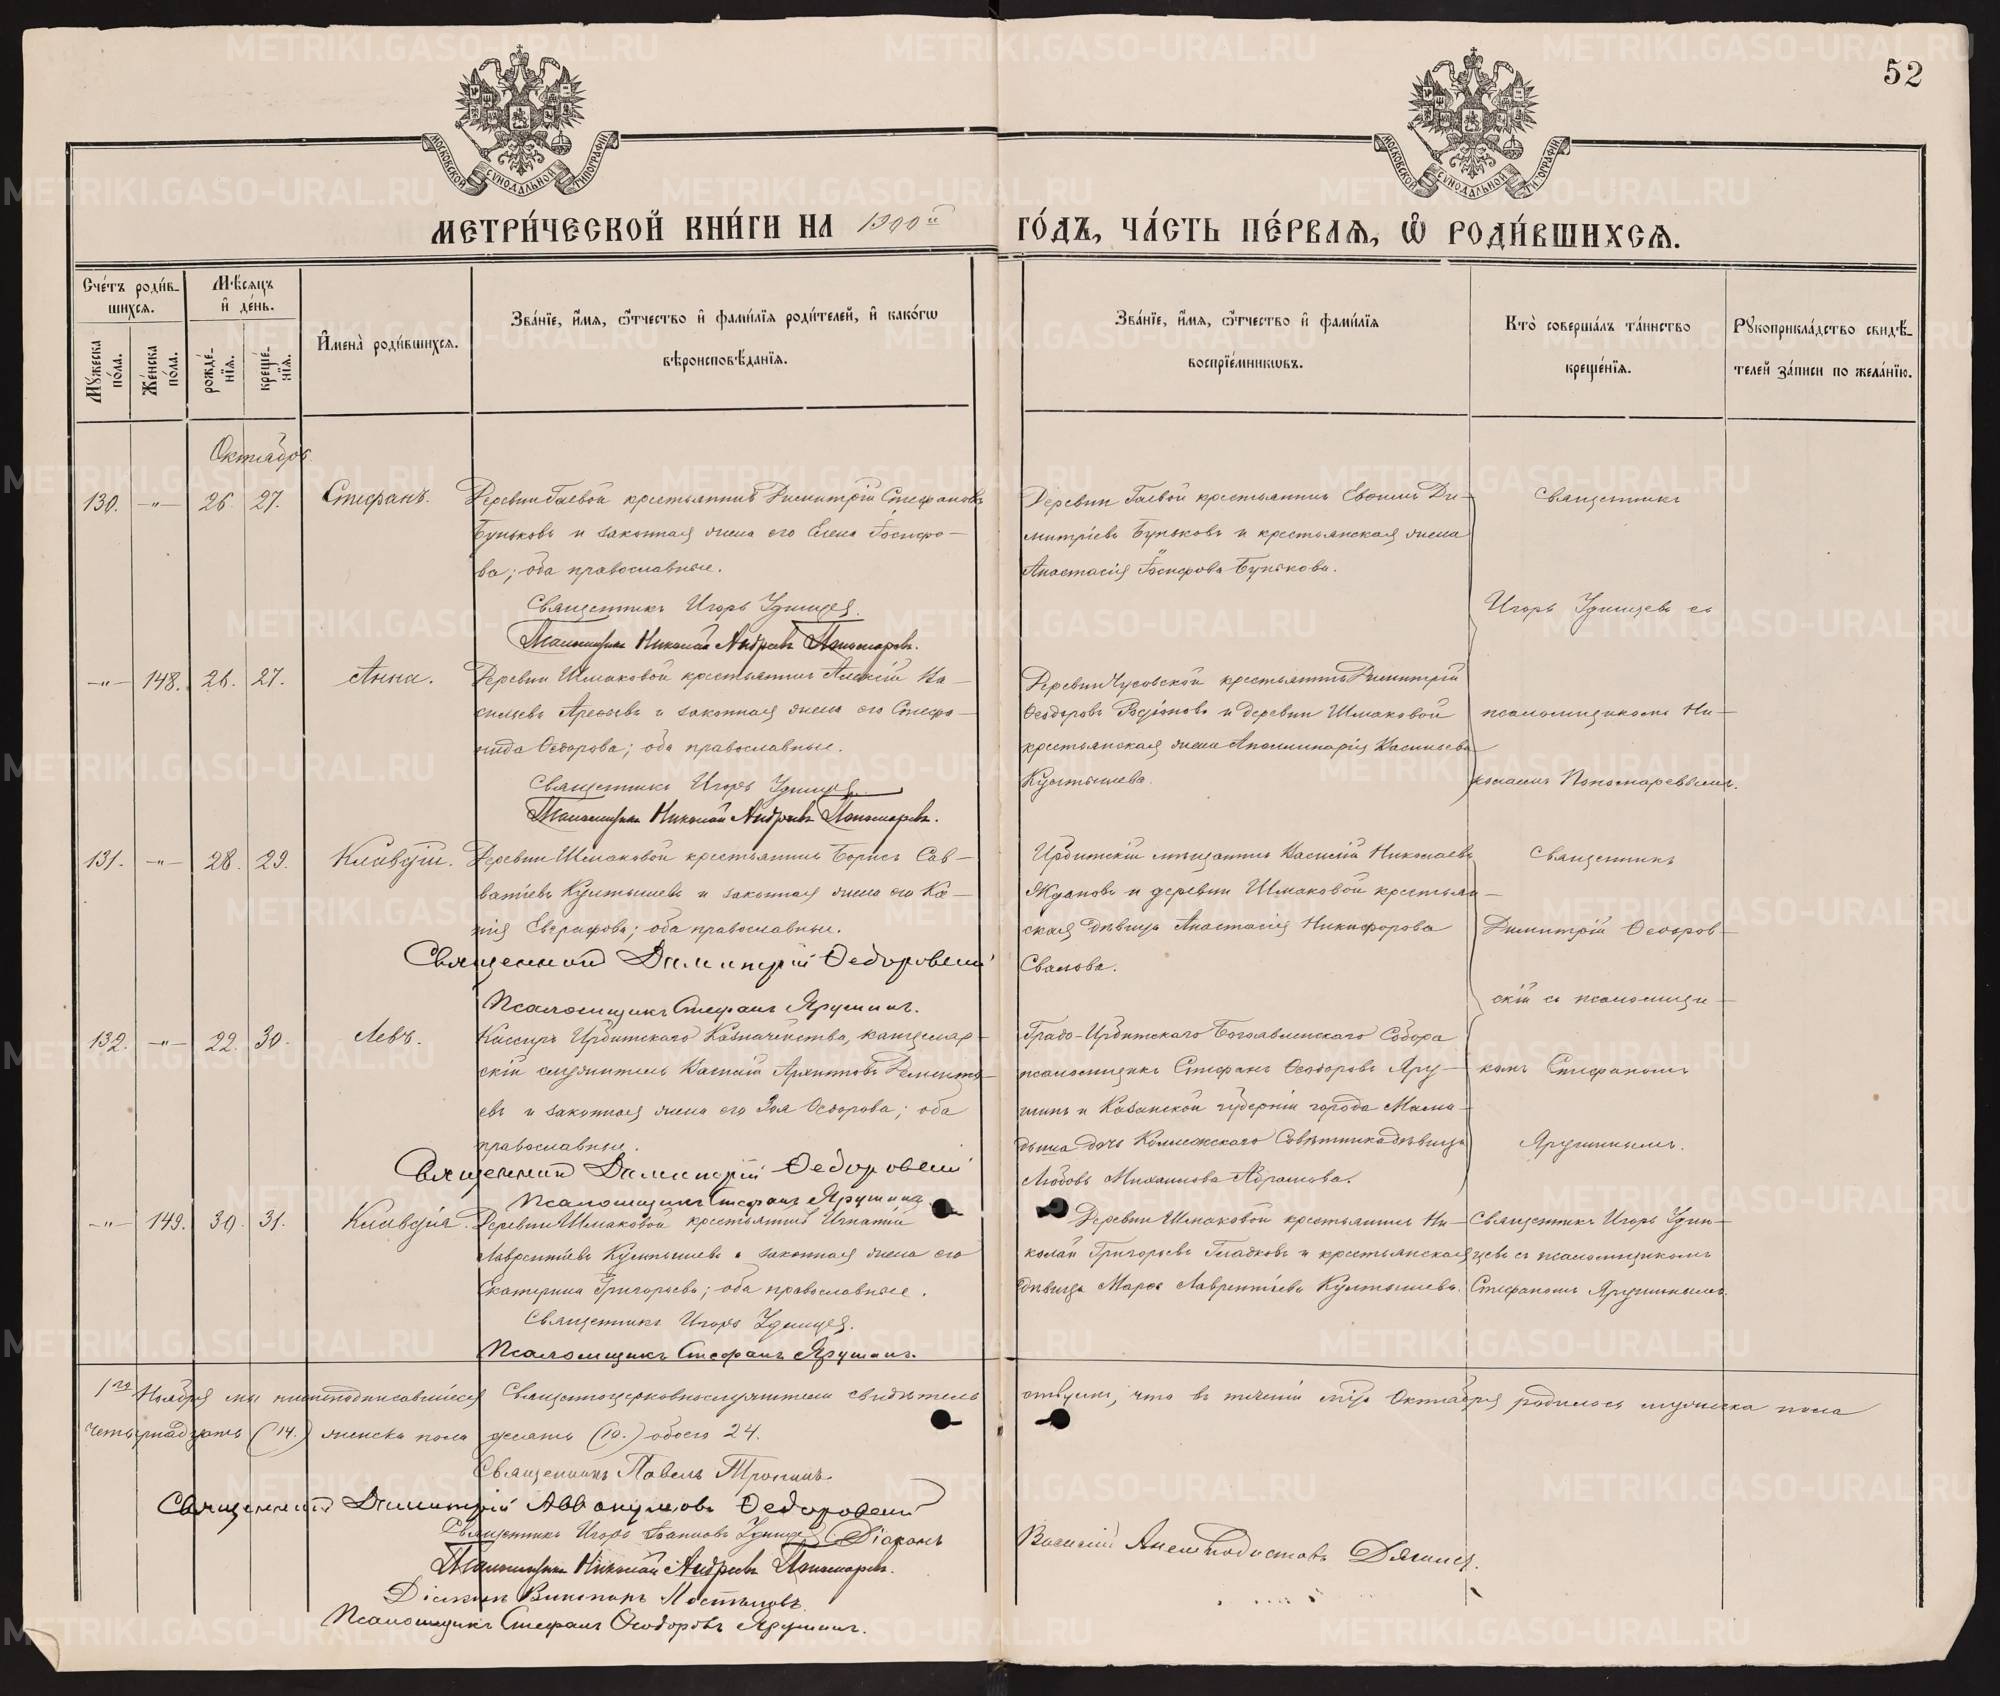 52
МОСКОВСКОЙ СѴНОДАЛЬНОЙ ТИПОГРАФІИ
МОСКОВСКОЙ СѴНОДАЛЬНОЙ ТИПОГРАФІИ
МЕТРИ́ЧЕСКОЙ КНИ́ГИ НА 1900й ГО́ДЪ, ЧА́СТЬ ПЕ́РВАѦ, Ѡ҆ РОДИ́ВШИХСѦ.
Сче́тъ роди́в-
шихсѧ.
Мꙋ́жеска по́ла.
Же́нска по́ла.
Мѣ́сѧцъ
и҆ де́нь.
рожде́-нїѧ.
креще́-нїѧ.
И҆мена̀ роди́вшихсѧ.
Зва́нїе, и҆́мѧ, ѻ҆́тчество и҆ фами́лїѧ роди́телей, и҆ како́гѡ
вѣроисповѣ́данїѧ.
Зва́нїе, и҆́мѧ, ѻ҆́тчество и҆ фами́лїѧ
воспрїе́мникѡвъ.
Кто̀ соверша́лъ та́инство
креще́нїѧ.
Рꙋкоприкла́дство свидѣ́-
телей за́писи по жела́нїю.
Октябрь
130. —"— 26. 27. Стефанъ.
Деревни Гаевой крестьянинъ Димитрій Стефановъ
Буньковъ и законная жена его Елена Іосифо-
ва; оба православные.
Священникъ Игорь Удинцев.
Псаломщикъ Николай Андреевъ Пономаревъ.
Деревни Гаевой крестьянинъ Евсимъ Ди-
митріевъ Буньковъ и крестьянская жена
Анастасія Іосифова Бунькова.
Священникъ
Игорь Удинцевъ съ
псаломщикомъ Ни-
колаемъ Пономаревымъ.
—"— 148. 26. 27. Анна.
Деревни Шмаковой крестьянинъ Алексій Ва-
сильевъ Арефьевъ и законная жена его Стефа-
нида Ѳедорова; оба православные.
Священникъ Игорь Удинцев
Псаломщикъ Николай Андреевъ Пономаревъ.
Деревни Чусовской крестьянинъ Димитрій
Ѳеодоровъ Родіоновъ и деревни Шмаковой
крестьянская жена Аполлинарія Васильева
Култышева.
131. —"— 28. 29. Клавдій.
Деревни Шмаковой крестьянинъ Борисъ Сав-
ватіевъ Култышевъ и законная жена его Ка-
нія Евграфова; оба православные.
Священник Димитрій Федоровский
Псаломщикъ Стефанъ Ярушинъ.
Ирбитскій мѣщанинъ Василій Николаевъ
Ждановъ и деревни Шмаковой крестьян-
ская дѣвица Анастасія Никифорова
Свалова.
Священникъ
Димитрій Ѳедоров-
скій съ псаломщи-
комъ Стефаномъ
Ярушинымъ.
132. —"— 22. 30. Левъ.
Кассиръ Ирбитскаго Казначейства, канцеляр-
скій служитель Василій Архиповъ Дементь-
евъ и законная жена его Зоя Ѳедорова; оба
православные.
Священник Димитрій Федоровский
Псаломщикъ Стефанъ Ярушинъ.
Градо-Ирбитскаго Богоявленскаго Собора
псаломщикъ Стефанъ Ѳеодоровъ Яру-
шинъ и Казанской губерніи города Мама-
дыша дочь Коллежскаго Совѣтника дѣвица
Любовь Михаилова Абрамова.
—"— 149. 30. 31. Клавдія.
Деревни Шмаковой крестьянинъ Игнатій
Лаврентіевъ Култышевъ и законная жена его
Екатерина Григорьева; оба православные.
Священникъ Игорь Удинцев.
Псаломщикъ Стефанъ Ярушинъ.
Деревни Шмаковой крестьянинъ Ни-
колай Григорьевъ Гладковъ и крестьянская
дѣвица Марѳа Лаврентіева Култышева.
Священникъ Игорь Удин-
цевъ съ псаломщикомъ
Стефаномъ Ярушинымъ.
1го Ноября мы нижеподписавшіеся Священноцерковнослужители свидѣтель-
ствуемъ, что въ теченіи мѣсяца Октября родилось мужеска пола
четырнадцать (14.) женска пола десять (10.) обоего 24.
Священникъ Павелъ Тронинъ.
Священник Димитрій Аввакумовъ Федоровский
Священникъ Игорь Іоанновъ Удинцев Діаконъ
Василій Анемподистовъ Дягилев.
Псаломщикъ Николай Андреевъ Пономаревъ.
Діаконъ Викторъ Постыловъ.
Псаломщикъ Стефанъ Ѳеодоровъ Ярушинъ.